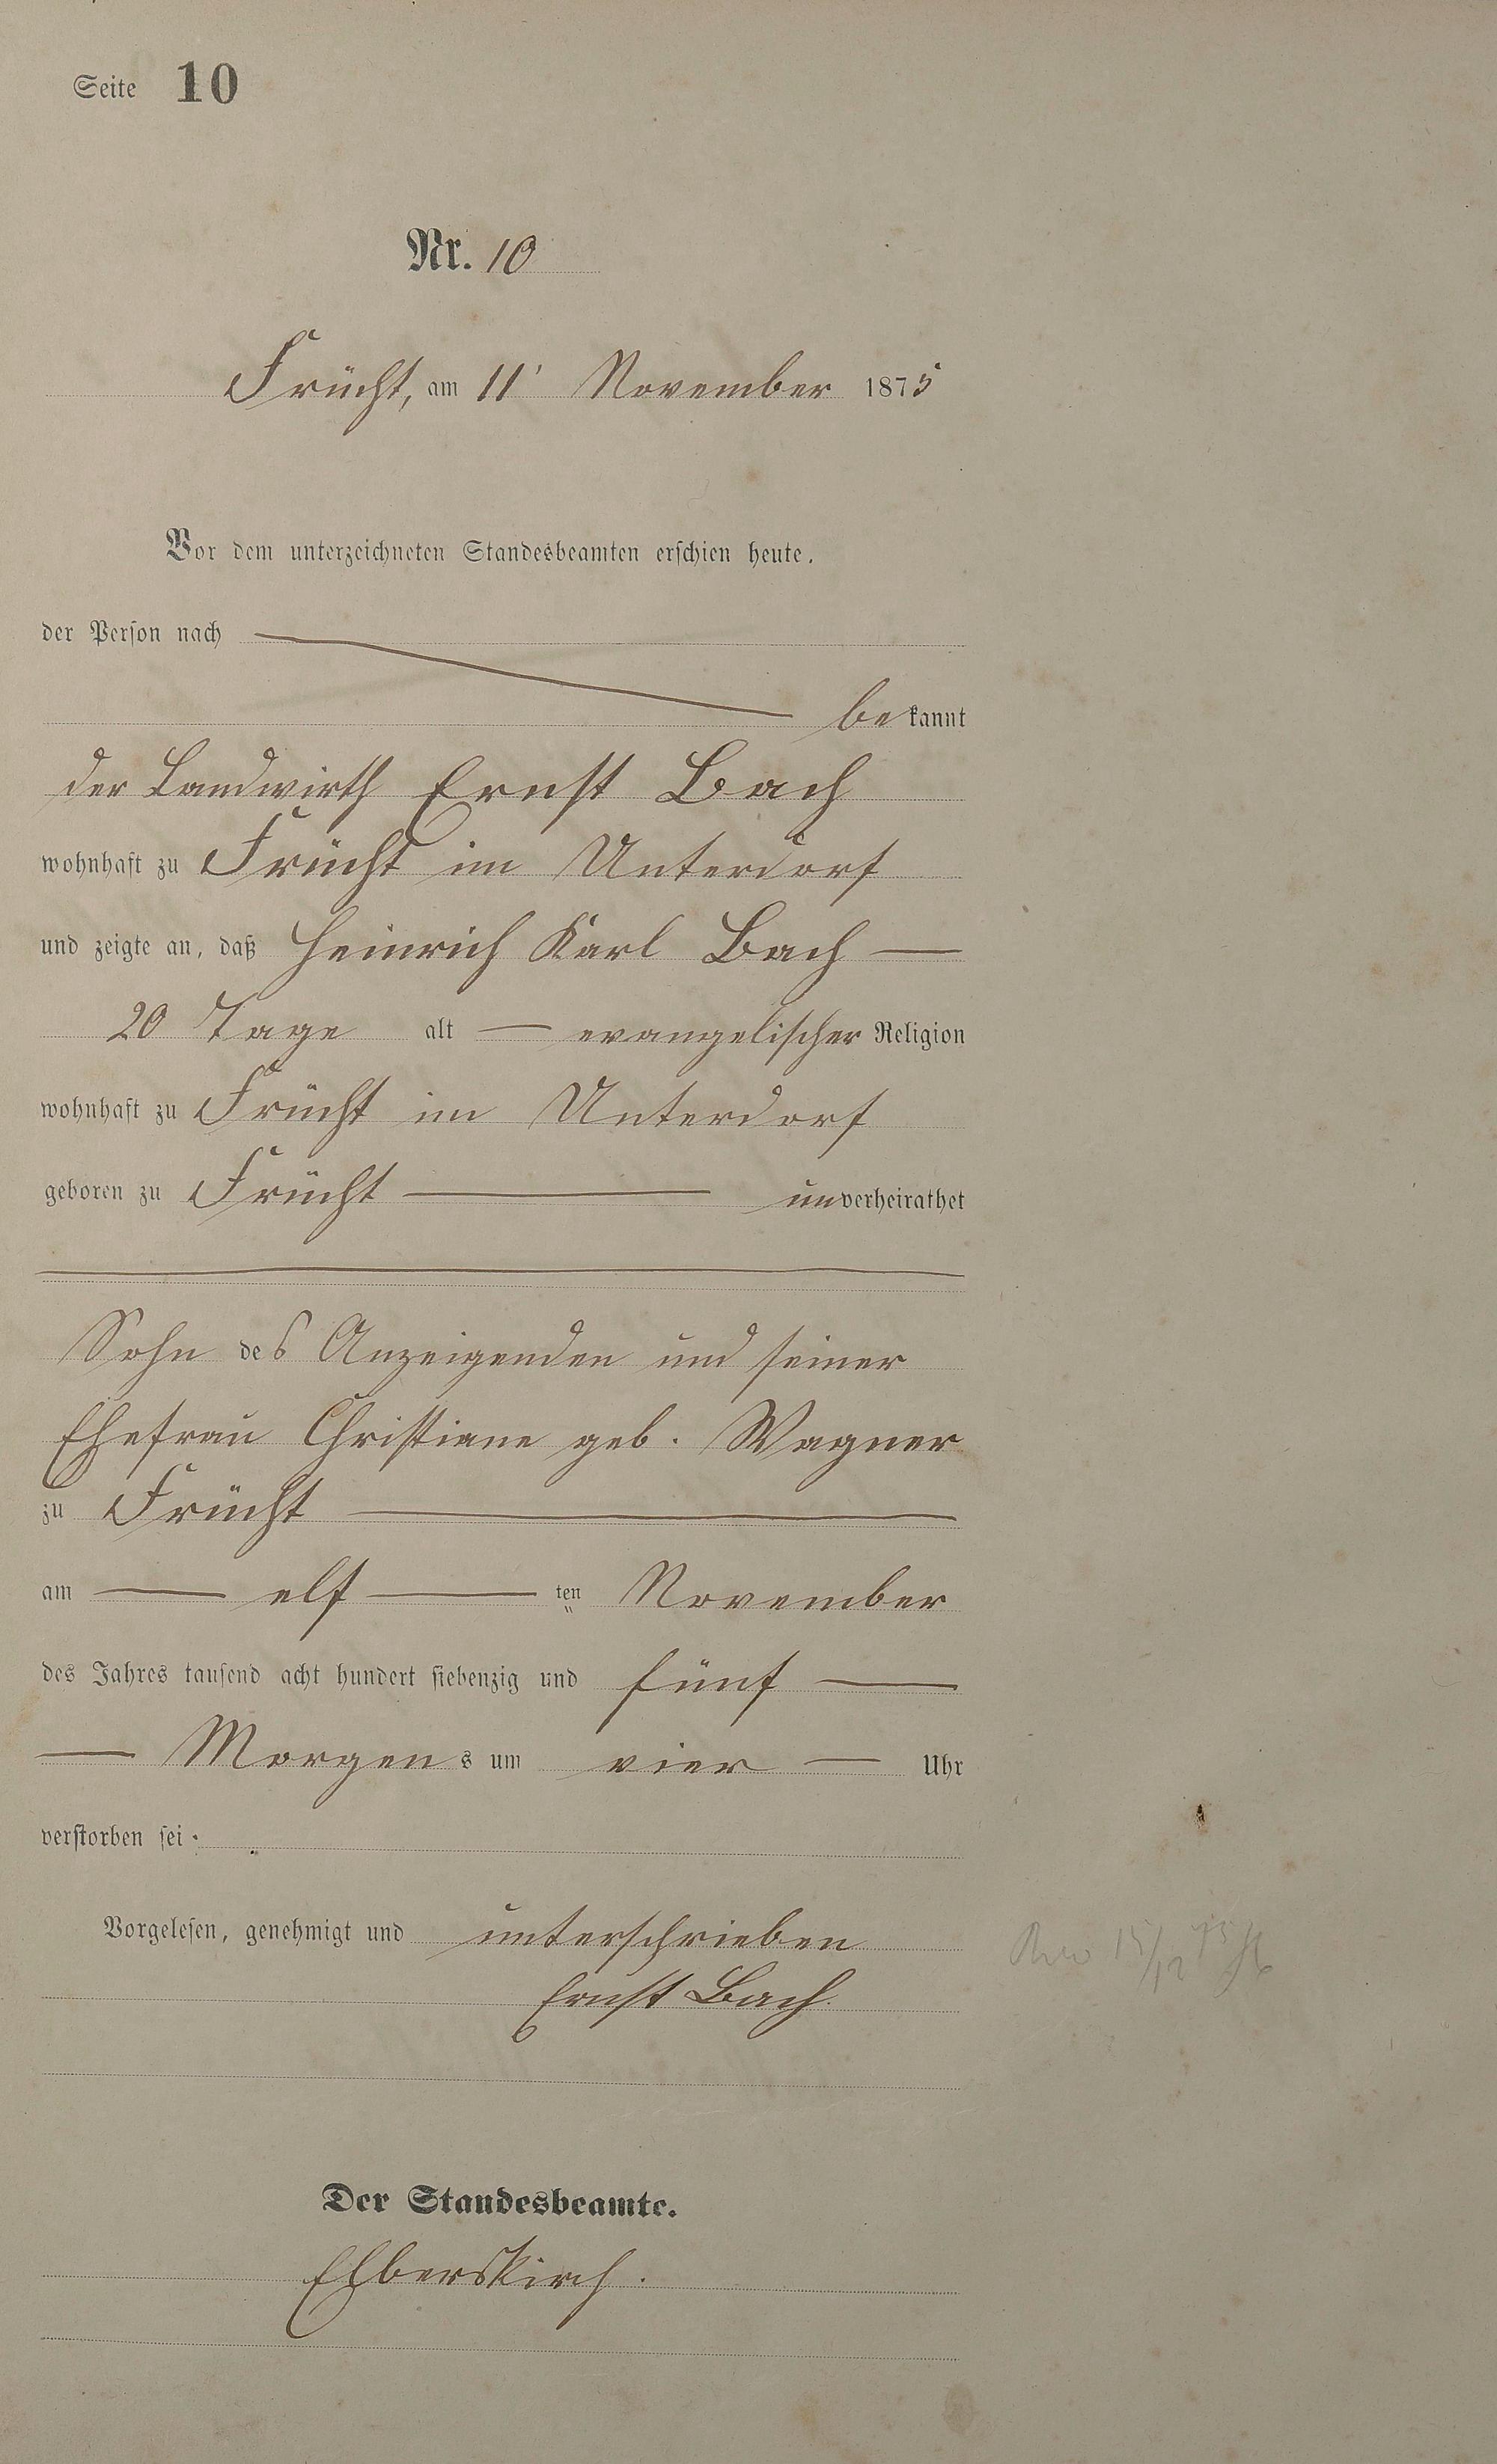 Seite 10
Nr. 10
Frücht, am 11' November 1875
Vor dem unterzeichneten Standesbeamten erschien heute,
der Person nach
bekannt
der Landwirth Ernst Bach
wohnhaft zu Frücht im Unterdorf
und zeigte an, daß Heinrich Karl Bach —
20 Tage alt — evangelischer Religion
wohnhaft zu Frücht im Unterdorf
geboren zu Frücht — unverheirathet
Sohn des Anzeigenden und seiner
Ehefrau Christiane geb. Wagner
zu Frücht —
am — elf — ten November
des Jahres tausend acht hundert siebenzig und fünf —
— Morgens um vier — Uhr
verstorben sei.
Vorgelesen, genehmigt und unterschrieben
Ernst Bach.
15/12 75
Der Standesbeamte.